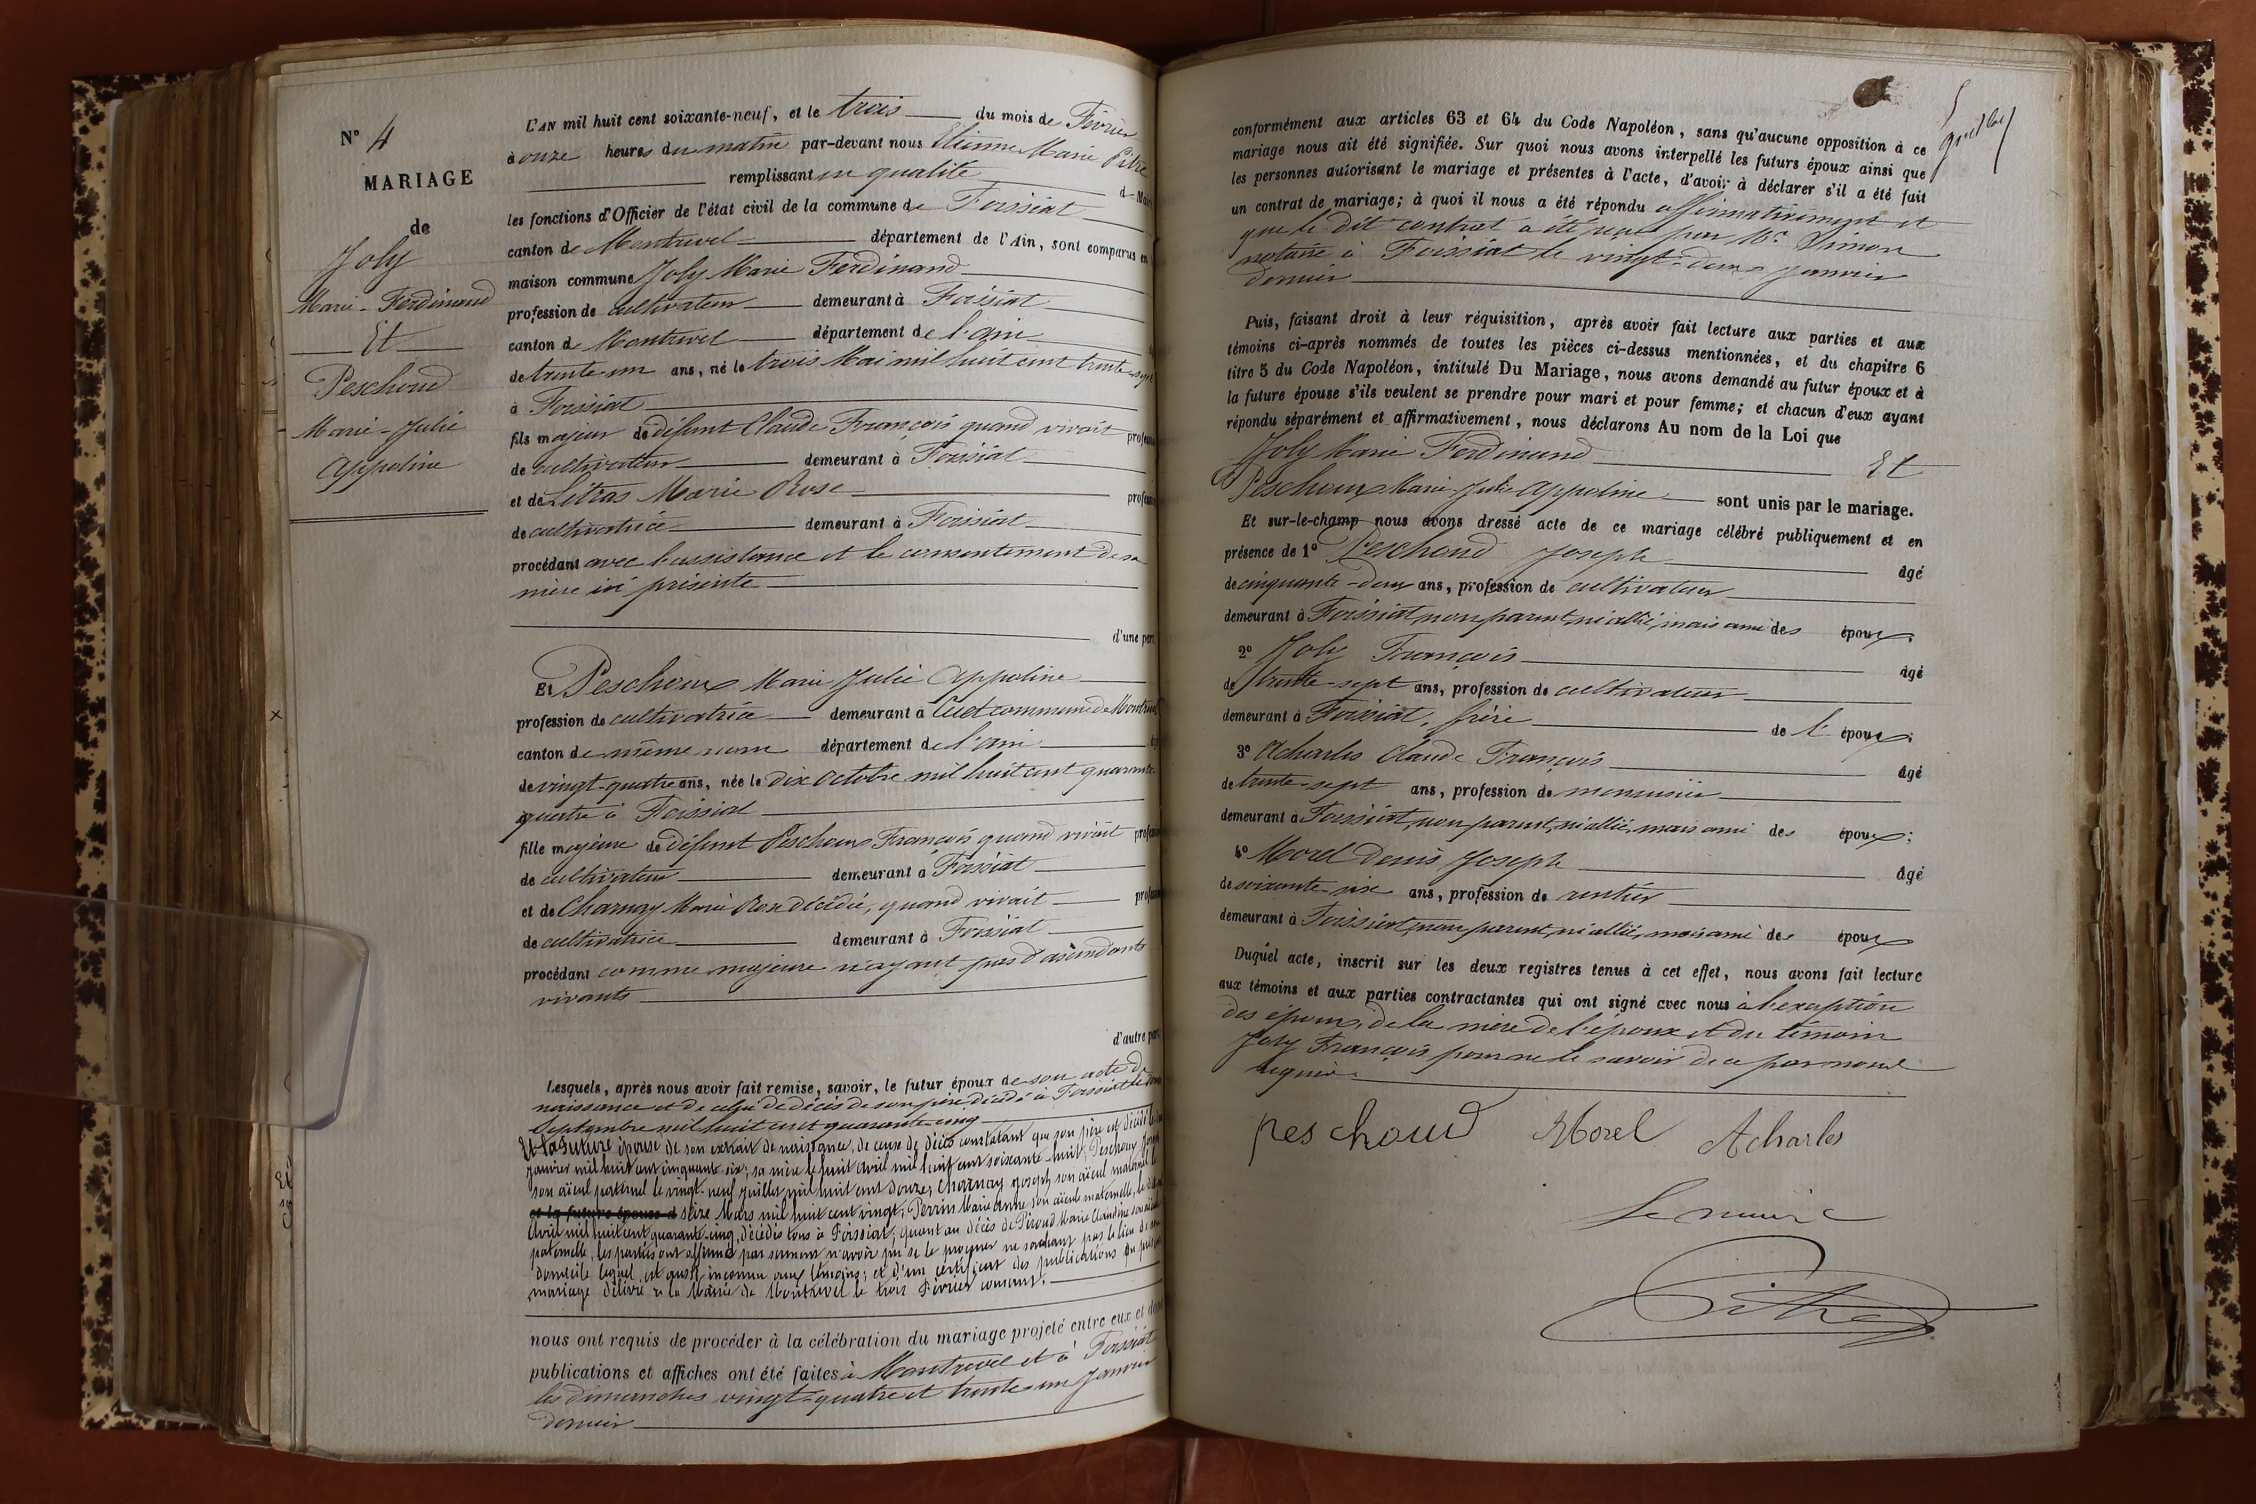 N° 4
MARIAGE
de
Joly
Marie-Ferdinand
Et
Peschoud
Marie-Julie
Appoline
L'AN mil huit cent soixante-neuf, et le trois du mois de Février
à onze heures du matin par-devant nous Etienne Marie Pitre
remplissant en qualité de Maire
les fonctions d'Officier de l'état civil de la commune de Foissiat
canton de Montrevel département de l'Ain, sont comparus en
maison commune Joly Marie Ferdinand
profession de cultivateur demeurant à Foissiat
canton de Montrevel département de l'ain
de trente-un ans, né le trois Mai mil huit cent trente-sept
à Foissiat
fils majeur de défunt Claude François quand vivait profession
de cultivateur demeurant à Foissiat
et de Litras Marie Rose profession
de cultivatrice demeurant à Foissiat
procédant avec l'assistance et le consentement de sa
mère ici présente
d'une part
Et Peschoux Marie Julie Appoline
profession de cultivatrice demeurant à Cuet commune de Montrevel
canton de même nom département de l'ain
de vingt-quatre ans, née le dix Octobre mil huit cent quarante-
quatre à Foissiat
fille majeure de défunt Peschoux François quand vivait profession
de cultivateur demeurant à Foissiat
et de Charnay Marie Rose décédée, quand vivait profession
de cultivatrice demeurant à Foissiat
procédant comme majeure n'ayant pas d'ascendants
vivants
d'autre part
Lesquels, après nous avoir fait remise, savoir, le futur époux de son acte de
naissance et de celui de décès de son père décédé à Foissiat le
Septembre mil huit cent quarante-cinq
Et la future épouse de son extrait de naissance, de ceux de décès constatant que son père est décédé le
janvier mil huit cent cinquante-six; sa mère le huit avril mil huit cent soixante-huit; Peschoux Joseph
son aïeul paternel le vingt-neuf juillet mil huit cent douze; Charnay Joseph son aïeul maternel le
et la future épouse d seize Mars mil huit cent vingt; Perrin Marie Anne son aïeule maternelle, le
Avril mil huit cent quarante-cinq, décédés tous à Foissiat; quant au décès de Piroud Marie Claudine son aïeule
paternelle, les parties ont affirmé par serment n'avoir pu se le procurer ne sachant pas le lieu de son
domicile lequel est aussi inconnu aux témoins; et d'un certificat des publications du présent
mariage délivré à la Mairie de Montrevel le trois Février courant.
nous ont requis de procéder à la célébration du mariage projeté entre eux et dont
publications et affiches ont été faites à Montrevel et à Foissiat
les dimanches vingt-quatre et trente-un Janvier
dernier
conformément aux articles 63 et 64 du Code Napoléon, sans qu'aucune opposition à ce
mariage nous ait été signifiée. Sur quoi nous avons interpellé les futurs époux ainsi que
les personnes autorisant le mariage et présentes à l'acte, d'avoir à déclarer s'il a été fait
un contrat de mariage; à quoi il nous a été répondu affirmativement et
que le dit contrat a été reçu par Me Simon
notaire à Foissiat le vingt-deux Janvier
dernier
Puis, faisant droit à leur réquisition, après avoir fait lecture aux parties et aux
témoins ci-après nommés de toutes les pièces ci-dessus mentionnées, et du chapitre 6
titre 5 du Code Napoléon, intitulé Du Mariage, nous avons demandé au futur époux et à
la future épouse s'ils veulent se prendre pour mari et pour femme; et chacun d'eux ayant
répondu séparément et affirmativement, nous déclarons Au nom de la Loi que
Joly Marie Ferdinand Et
Peschoux Marie Julie Appoline sont unis par le mariage.
Et sur-le-champ nous avons dressé acte de ce mariage célébré publiquement et en
présence de 1° Peschoud Joseph âgé
de cinquante-deux ans, profession de cultivateur
demeurant à Foissiat non parent, ni allié, mais ami des époux;
2° Joly François âgé
de trente-sept ans, profession de cultivateur
demeurant à Foissiat, frère de l'époux;
3° Acharles Claude François âgé
de trente-sept ans, profession de menuisier
demeurant à Foissiat, non parent, ni allié, mais ami des époux;
4° Morel Denis Joseph âgé
de soixante-six ans, profession de rentier
demeurant à Foissiat, non parent, ni allié, mais ami des époux
Duquel acte, inscrit sur les deux registres tenus à cet effet, nous avons fait lecture
aux témoins et aux parties contractantes qui ont signé avec nous à l'exception
des époux, de la mère de l'époux et du témoin
Joly François pour ne le savoir de ce par nous
requis
peschoud Morel Acharles
Le maire
Pitre